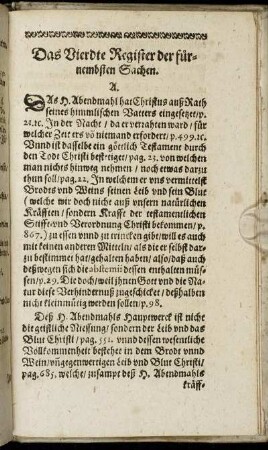 Das Vierdte Register der für-
nembsten Sachen.
A.
DAs H. Abendmahl hat Christus auß Rath
seines himmlischen Vatters eingesetzet/p.
21.ꝛc. In der Nacht/ da er verrahten ward/ für
welcher Zeit ers võ niemand erfordert/p.499.ꝛc.
Vnnd ist dasselbe ein göttlich Testament durch
den Todt Christi bestetiget/pag. 21. von welchen
man nichts hinweg nehmen/ noch etwas darzu
thun soll/pag.22. In welchem er vns vermittelst
Brodes vnd Weins seinen Leib vnd sein Blut
(welche wir doch nicht auß vnsern natürlichen
Kräfften/ sondern Krafft der testamentlichen
Stifft/vnd Verordnung Christi bekommen/p.
867.) zu essen vnnd zu trincken gibt/will es auch
mit keinen anderen Mitteln/ als die er selbst dar-
zu bestimmet hat/gehalten haben/ also/daß auch
deßwegen sich die abstemii dessen enthalten müs-
sen/p.29. Die doch/weil jhnen Gott vnd die Na-
tur diese Verhindernuß zugeschicket/ deßhalben
nicht kleinmütig werden sollen/p.98.
Deß H. Abendmahls Hauptwerck ist nicht
die geistliche Niessung/ sondern der Leib vnd das
Blut Christi/pag.551. vnnd dessen wesentliche
Vollkommenheit bestehet in dem Brodt vnnd
Wein/vñ gegenwertigen Leib vnd Blut Christi/
pag.685. welche/ zusampt deß H. Abendmahls
kräff-